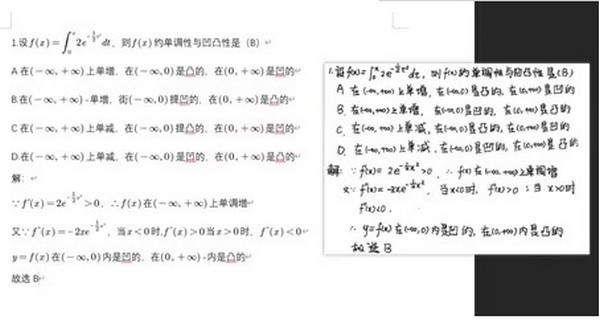 1.设f(x)=∫₀ˣ2e^{-½t²}dt，则f(x)约单调性与凹凸性是（B）
A 在(-∞,+∞)上单增，在(-∞,0)是凸的，在(0,+∞)是凹的
B.在(-∞,+∞)-单增，街(-∞,0)提凹的，在(0,+∞)是凸的
C 在(-∞,+∞)上单减，在(-∞,0)提凸的，在(0,+∞)是凹的
D.在(-∞,+∞)上单减，在(-∞,0)是凹的，在(0,+∞)是凸的
解：
∵f'(x)=2e^{-½x²}>0，∴f(x)在(-∞,+∞)上单调增
又∵f''(x)=-2xe^{-½x²}，当x<0时,f''(x)>0当x>0时，f''(x)<0
y=f(x)在(-∞,0)内是凹的，在(0,+∞)-内是凸的
故选B
1.设f(x)=∫₀ˣ2e^{-½t²}dt，则f(x)的单调性与凹凸性是(B)
A 在(-∞,+∞)上单增，在(-∞,0)是凸的，在(0,+∞)是凹的
B. 在(-∞,+∞)上单增，在(-∞,0)是凹的，在(0,+∞)是凸的
C. 在(-∞,+∞)上单减，在(-∞,0)是凸的，在(0,+∞)是凹的
D. 在(-∞,+∞)上单减，在(-∞,0)是凹的，在(0,+∞)是凸的
解 ∵f'(x)=2e^{-½x²}>0，∴f(x)在(-∞,+∞)上单调增
又∵f''(x)=-2xe^{-½x²}，当x<0时，f''(x)>0；当x>0时
f''(x)<0.
∴y=f(x)在(-∞,0)内是凹的，在(0,+∞)内是凸的
故选B